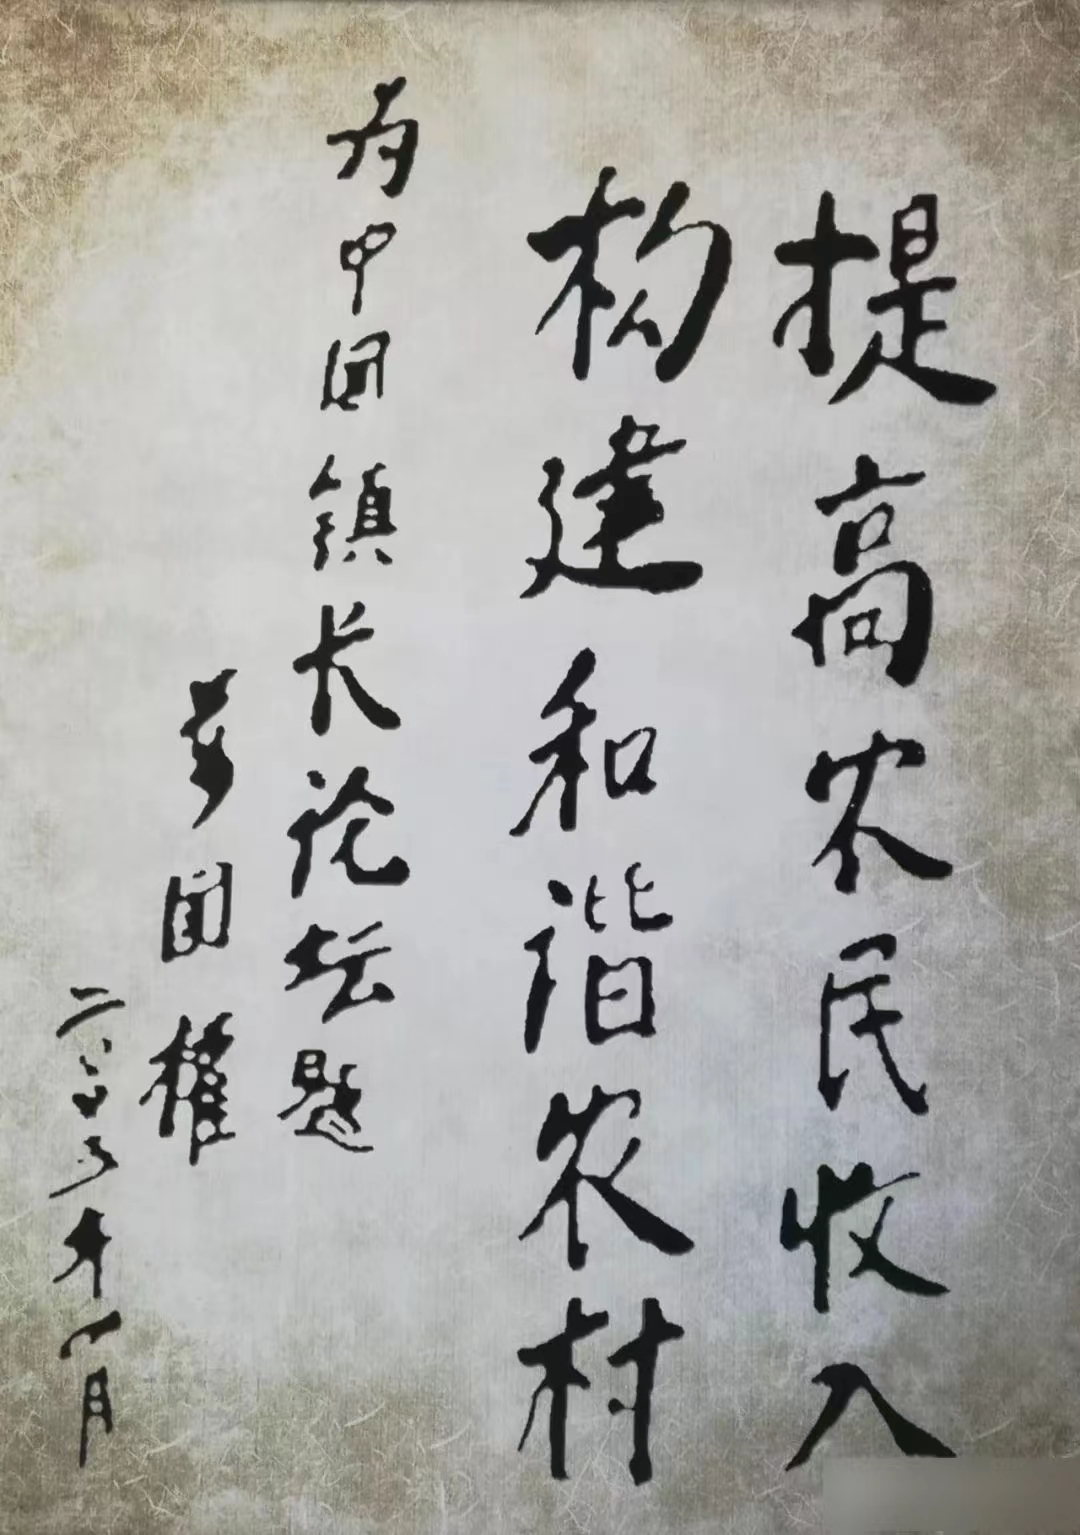 提高农民收入
构建和谐农村
为中国镇长论坛题
国權
二〇〇年月